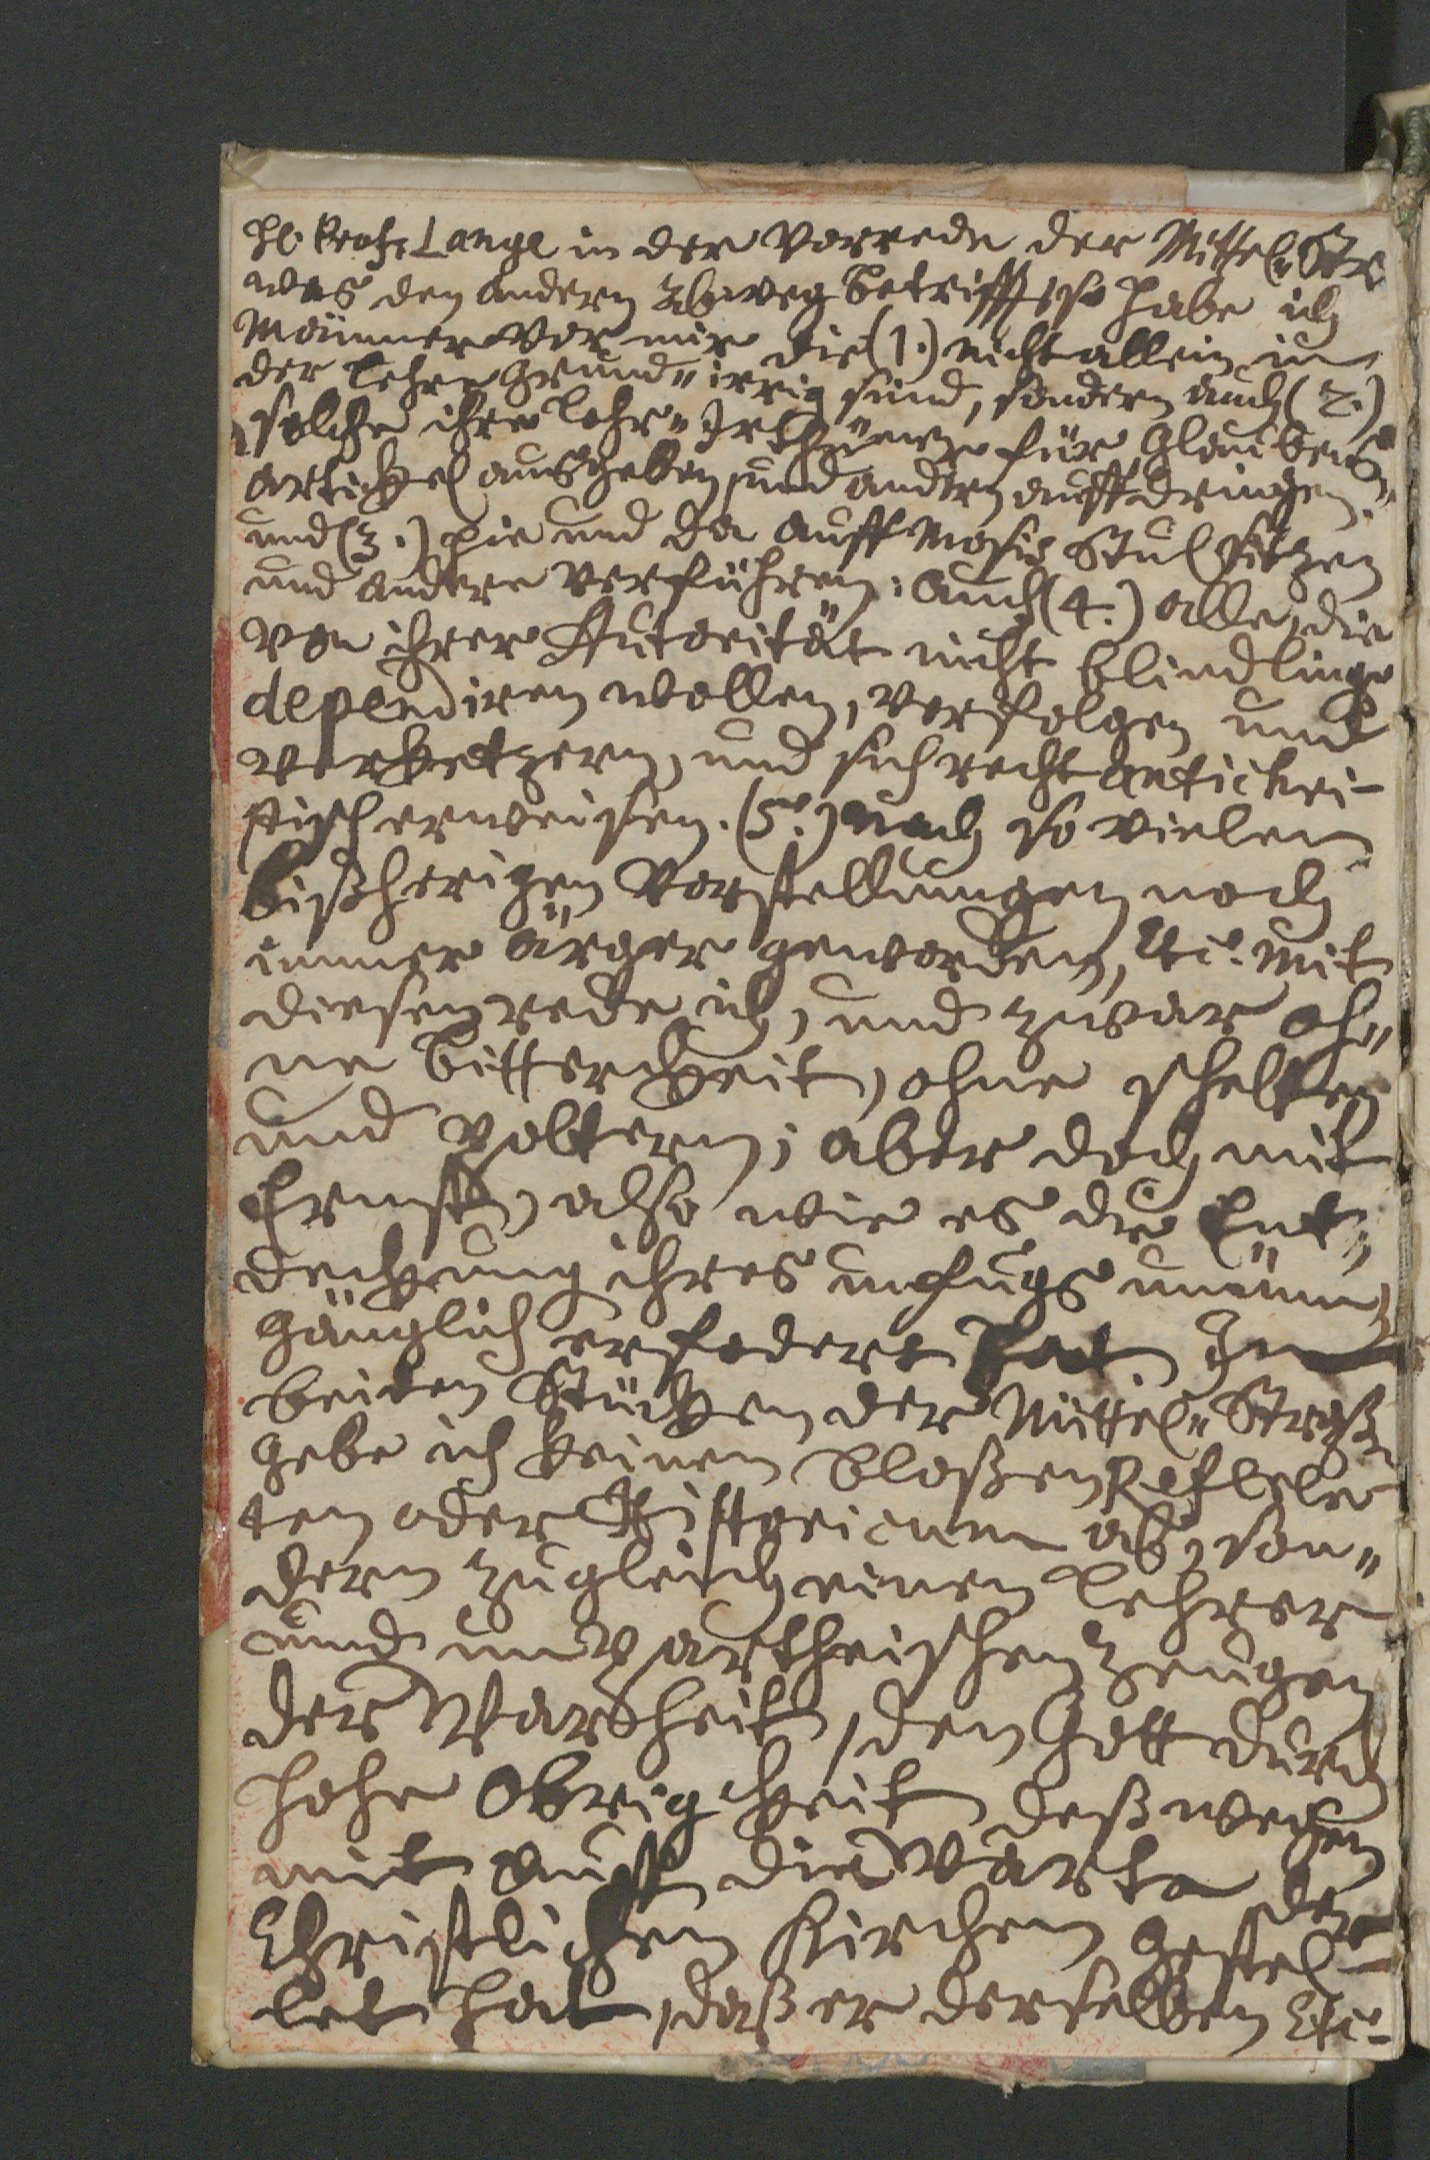 H. Prof. Lange in der Vorrede der Mittel-Str.
was den andern Abweg betrifft, so habe ich
Männer vor mir die (1.) nicht allein in
der Lehre Grund-irrig sind, sondern auch (2.)
solche ihre Lehr-Irthümer für Glaubens-
artickel außgeben, und andern auffdringen.
und (3.) hie und da auff Mosis Stul sitzen
und andere verführen; auch (4.) alle, die
von ihrer Autorität nicht blindlings
dependiren wollen, verfolgen und
verketzern, und sich recht antichri-
stisch erweisen. (5.) nach so vielen
bißherigen Vorstellungen noch
immer ärger geworden, etc. Mit
diesen rede ich, und zwar oh-
ne Bitterckeit, ohne schelten
und poltern; aber doch mit
Ernst, also wie es die Ent-
deckung ihres unfugs unum-
gänglich erfodert hat. In
beiden Stücken der Mittel-Straße
gebe ich keinen bloßen Referen-
ten oder Historicum ab, son-
dern zugleich einen Lehrer
und unpartheischen Zeugen
der Warheit, den Gott durch
hohe Obrigckeit deßwegen
mit auff die Warte der
Christlichen Kirchen gestel-
let hat, daß er derselben